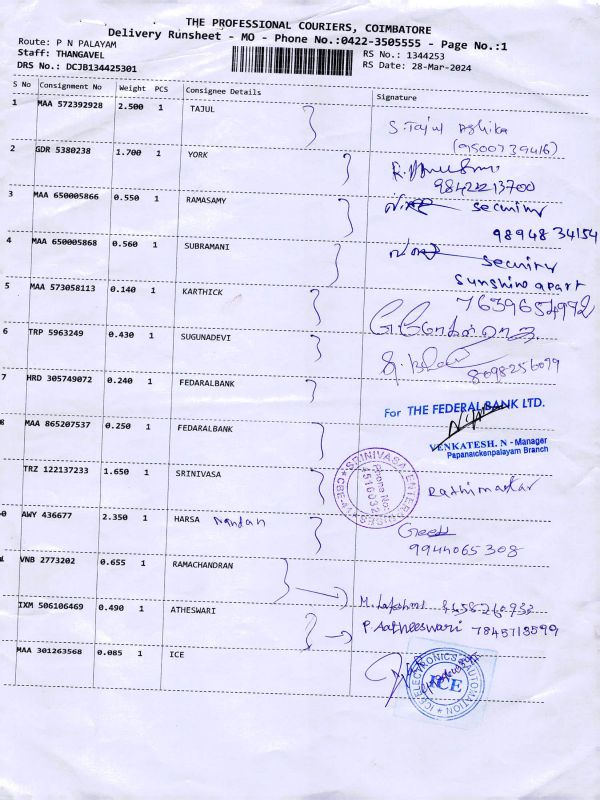 THE PROFESSIONAL COURIERS, COIMBATORE
Delivery Runsheet - MO - Phone No.:0422-3505555 - Page No.:1
Route: P N PALAYAM
Staff: THANGAVEL
DRS No.: DCJB134425301
RS No.: 1344253
RS Date: 28-Mar-2024
S No Consignment No Weight PCS Consignee Details Signature
1 MAA 572392928 2.500 1 TAJUL
S.Tajul Ashika
(9500739416)
2 GDR 5380238 1.700 1 YORK
9842213700
3 MAA 650005866 0.550 1 RAMASAMY
security
9894834154
4 MAA 650005868 0.560 1 SUBRAMANI
security
Sunshine apart
5 MAA 573058113 0.140 1 KARTHICK
7639654992
6 TRP 5963249 0.430 1 SUGUNADEVI
8098256099
7 HRD 305749072 0.240 1 FEDARALBANK
For THE FEDERAL BANK LTD.
8 MAA 865207537 0.250 1 FEDARALBANK
VENKATESH. N - Manager
Papanaickenpalayam Branch
TRZ 122137233 1.650 1 SRINIVASA
SRINIVASA ENTERPRISES
Phone No:
4516032
0 AWY 436677 2.350 1 HARSA Nandan
Geetha
9944065308
VNB 2773202 0.655 1 RAMACHANDRAN
M. Lakshmi
IXM 506106469 0.490 1 ATHESWARI
P. Aatheeswari 7845713599
MAA 301263568 0.085 1 ICE
ICE ELECTRONICS AUTOMATION
ICE